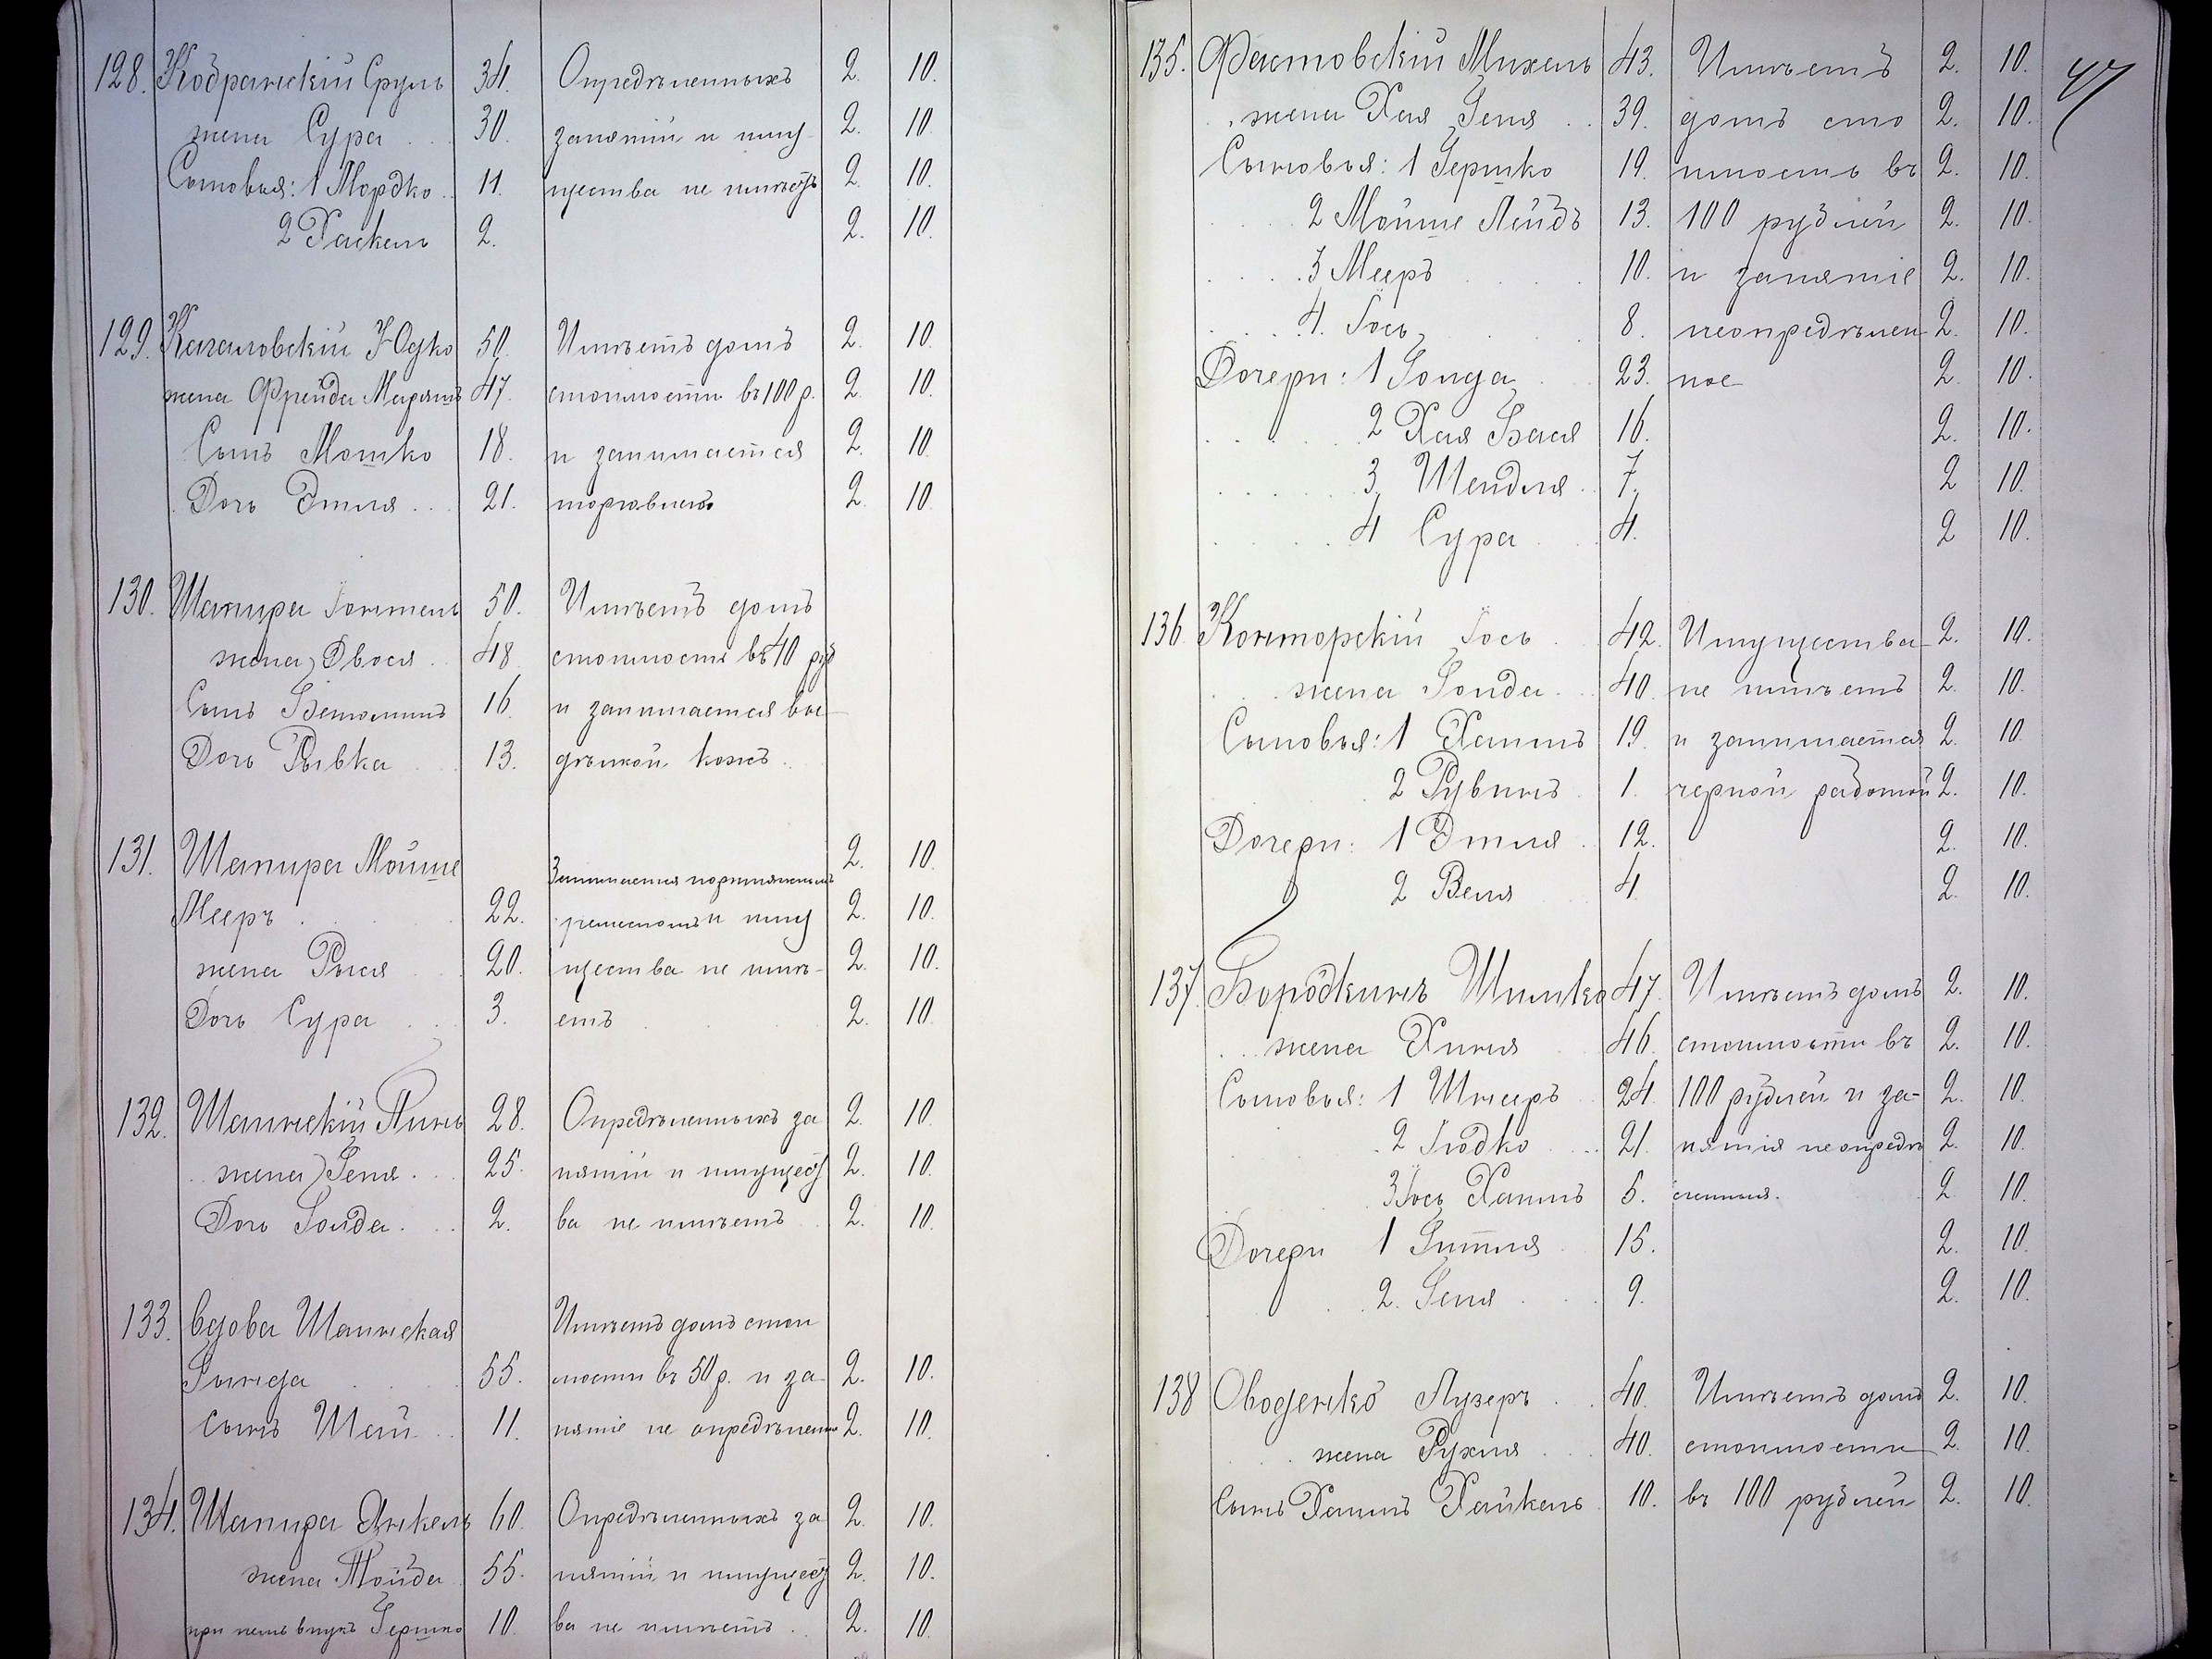 128. Кобранскій Сруль 34. Опредѣленныхъ 2. 10.
жена Сура 30. занятій и иму 2. 10.
Сыновья: 1 Мордко 11. щества не имѣетъ 2. 10.
2 Хаскель 2. 2. 10.
129. Кагановскій Юдко 50. Имѣетъ домъ 2. 10.
жена Фрейда Марьямъ 47. стоимости въ 100 р. 2. 10.
Сынъ Мошко 18. и занимается 2. 10
Дочь Этля 21. торговлею 2. 10.
130. Шапира 50. Имѣетъ домъ
жена Двося 48 стоимости въ 40 руб
Сынъ Беньоминъ 16 и занимается вы
Дочь Рывка 13. дѣлкой кожъ
131. Шапира Мойше 2. 10.
Занимается портняжнымъ
Мееръ 22. ремесломъ и иму 2. 10.
жена Рыся 20. щества не имѣ- 2. 10.
Дочь Сура 3. етъ 2. 10.
132. Шанскій Пинь 28. Опредѣленныхъ за 2. 10.
жена Геня 25. нятій и имущест 2. 10.
Дочь Гольда 2. ва не имѣетъ 2. 10.
133. вдова Шанская Имѣетъ домъ стои
55. мости въ 50 р. и за 2. 10.
сынъ Шая 11. нятіе не опредѣленно 2. 10.
134. Шапира Янкель 60. Опредѣленныхъ за 2. 10.
жена Тойба 55. нятій и имущест 2. 10.
при немъ внукъ Гершко 10. ва не имѣетъ 2. 10.
47
135. Фастовскій Михель 43. Имѣетъ 2. 10.
жена Хая Геня 39. домъ сто 2. 10.
Сыновья: 1 Гершко 19. имость въ 2. 10.
2 Мойше Лейбъ 13. 100 рублей 2. 10.
3 Мееръ 10. и занятіе 2. 10.
4. Іось 8. неопредѣлен 2. 10.
Дочери: 1 Голда 23. ное 2. 10.
2 Хая Бася 16. 2. 10.
3 Шендля 7. 2 10.
4 Сура 4. 2 10.
136. Конторскій Іось 42. Имущества 2. 10.
жена Гольда 40. не имѣетъ 2. 10.
Сыновья: 1 Хаимъ 19. и занимается 2. 10
2 Рувинъ 1. черной работой 2. 10.
Дочери: 1 Этля 12. 2. 10.
2 Веля 4 2. 10.
137. Бородкинъ Шимко 47. Имѣетъ домъ 2. 10.
жена Хиня 46. стоимости въ 2. 10.
Сыновья: 1 Шнееръ 24. 100 рублей и за- 2. 10.
2 Іюдко 21. нятія неопредѣ 2. 10.
3 Іось Хаимъ 5. ленныя. 2 10.
Дочери 1 Гитля 15. 2. 10.
2. Геня 9. 2. 10.
138 Оводенко Лузеръ 40. Имѣетъ домъ 2. 10.
жена Рухля 40. стоимости 2. 10.
Сынъ Хаимъ Хайкель 10. въ 100 рублей 2. 10.